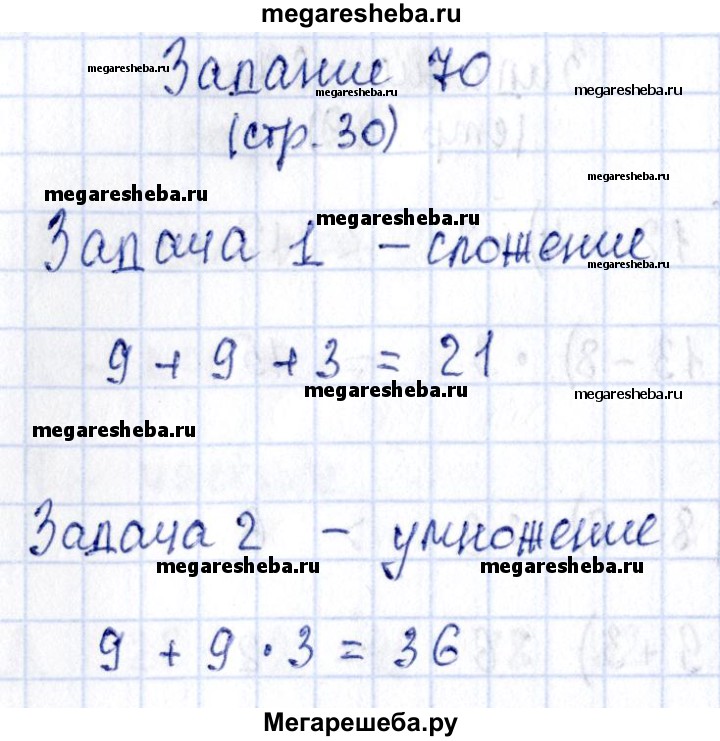 megaresheba.ru
Задание 70
megaresheba.ru
megaresheba.ru
megaresheba.ru
(стр. 30)
megaresheba.ru
megaresheba.ru
megaresheba.ru
Задача 1 - сложение
megaresheba.ru
9 + 9 + 3 = 21
megaresheba.ru
megaresheba.ru
megaresheba.ru
Задача 2 - умножение
megaresheba.ru
megaresheba.ru
9 + 9 · 3 = 36
Мегарешеба.ру